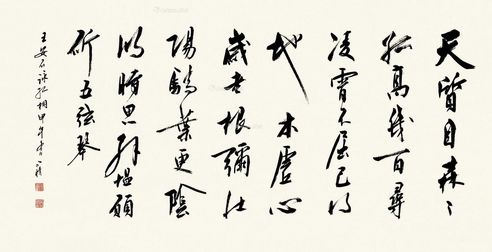 天質自森〻
孤高幾百尋
凌霄不屈己得
地本虛心
歲老根彌壯
陽驕葉更陰
明時思解愠願
斫五弦琴
王安石詠孤桐甲午